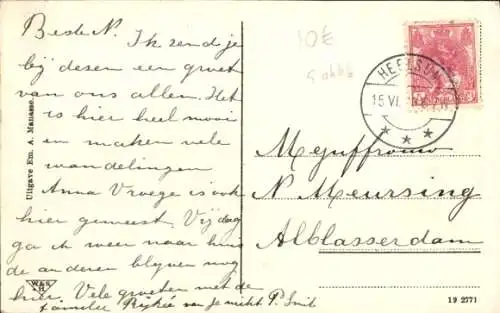 Beste N. Ik zend je
bij dezen een groet
van ons allen. Het
is hier heel mooi
en maken vele
wandelingen
Anna Vroege is ook
hier geweest. Vrijdag
ga ik weer naar huis
de anderen blyven nog
hier. Vele groeten met de
familie van je nicht P. Smit
Uitgave Em. A. Manasse.
W&S
H
10€
HEELSUM
15 VI
Mejuffrouw
N Meursing
Alblasserdam
19 2771